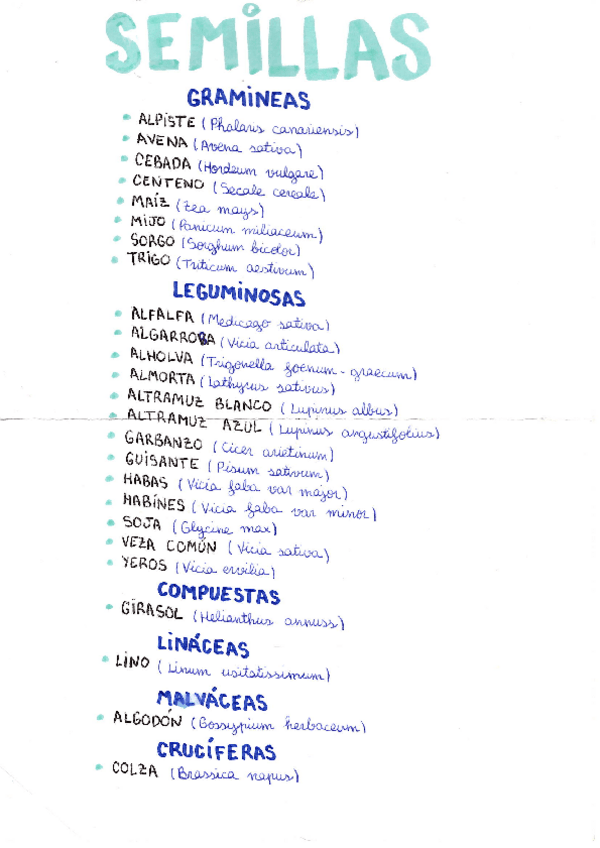 SEMILLAS
GRAMINEAS
• ALPISTE (Phalaris canariensis)
• AVENA (Avena sativa)
• CEBADA (Hordeum vulgare)
• CENTENO (Secale cereale)
• MAÍZ (Zea mays)
• MIJO (Panicum miliaceum)
• SORGO (Sorghum bicolor)
• TRIGO (Triticum aestivum)
LEGUMINOSAS
• ALFALFA (Medicago sativa)
• ALGARROBA (Vicia articulata)
• ALHOLVA (Trigonella foenum-graecum)
• ALMORTA (Lathyrus sativus)
• ALTRAMUZ BLANCO (Lupinus albus)
• ALTRAMUZ AZUL (Lupinus angustifolius)
• GARBANZO (Cicer arietinum)
• GUISANTE (Pisum sativum)
• HABAS (Vicia faba var major)
• HABINES (Vicia faba var minor)
• SOJA (Glycine max)
• VEZA COMÚN (Vicia sativa)
• YEROS (Vicia ervilia)
COMPUESTAS
• GIRASOL (Helianthus annuss)
LINÁCEAS
• LINO (Linum usitatissimum)
MALVÁCEAS
• ALGODÓN (Gossypium herbaceum)
CRUCÍFERAS
• COLZA (Brassica napus)